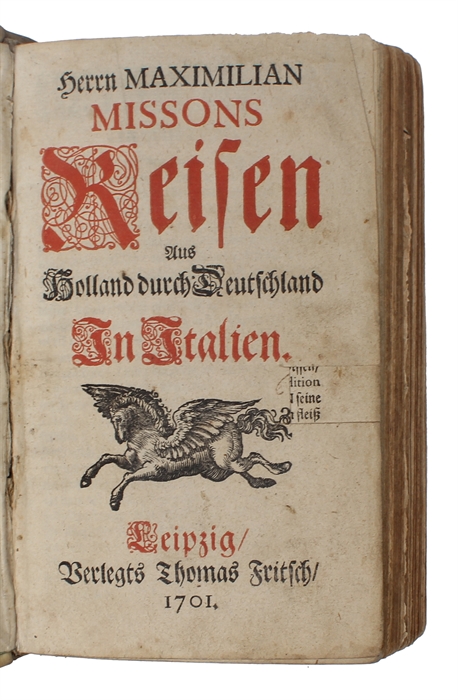 Herrn MAXIMILIAN
MISSONS
Reisen
Aus
Holland durch Deutschland
In Italien.
dition
seine
fleiß
Leipzig/
Verlegts Thomas Fritsch/
1701.